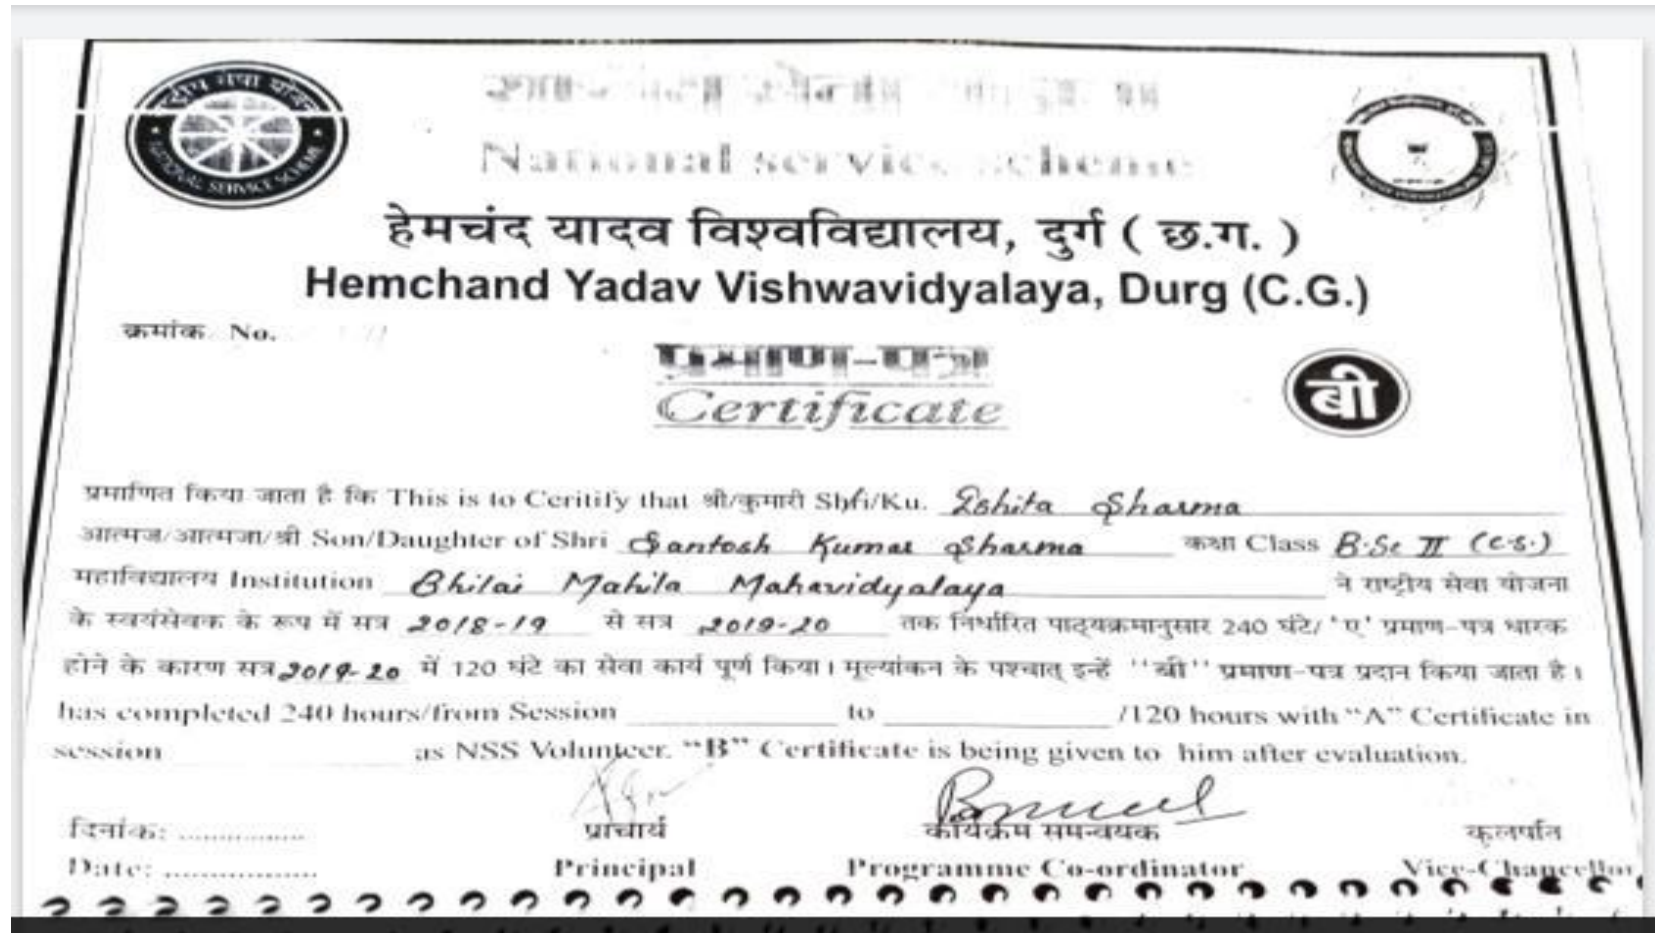 राष्ट्रीय सेवा योजना
NATIONAL SERVICE SCHEME
National service scheme
हेमचंद यादव विश्वविद्यालय, दुर्ग ( छ.ग. )
Hemchand Yadav Vishwavidyalaya, Durg (C.G.)
क्रमांक No.
प्रमाण-पत्र
Certificate
बी
प्रमाणित किया जाता है कि This is to Ceritify that श्री/कुमारी Shri/Ku. Eshita Sharma
आत्मज/आत्मजा/श्री Son/Daughter of Shri Santosh Kumar Sharma कक्षा Class B.Sc II (C.S.)
महाविद्यालय Institution Bhilai Mahila Mahavidyalaya ने राष्ट्रीय सेवा योजना
के स्वयंसेवक के रूप में सत्र 2018-19 से सत्र 2019-20 तक निर्धारित पाठ्यक्रमानुसार 240 घंटे/ 'ए' प्रमाण-पत्र धारक
होने के कारण सत्र 2019-20 में 120 घंटे का सेवा कार्य पूर्ण किया। मूल्यांकन के पश्चात् इन्हें ''बी'' प्रमाण-पत्र प्रदान किया जाता है।
has completed 240 hours/from Session to /120 hours with "A" Certificate in
session as NSS Volunteer. "B" Certificate is being given to him after evaluation.
दिनांक: ................ प्राचार्य कार्यक्रम समन्वयक कुलपति
Date: .................. Principal Programme Co-ordinator Vice-Chancellor